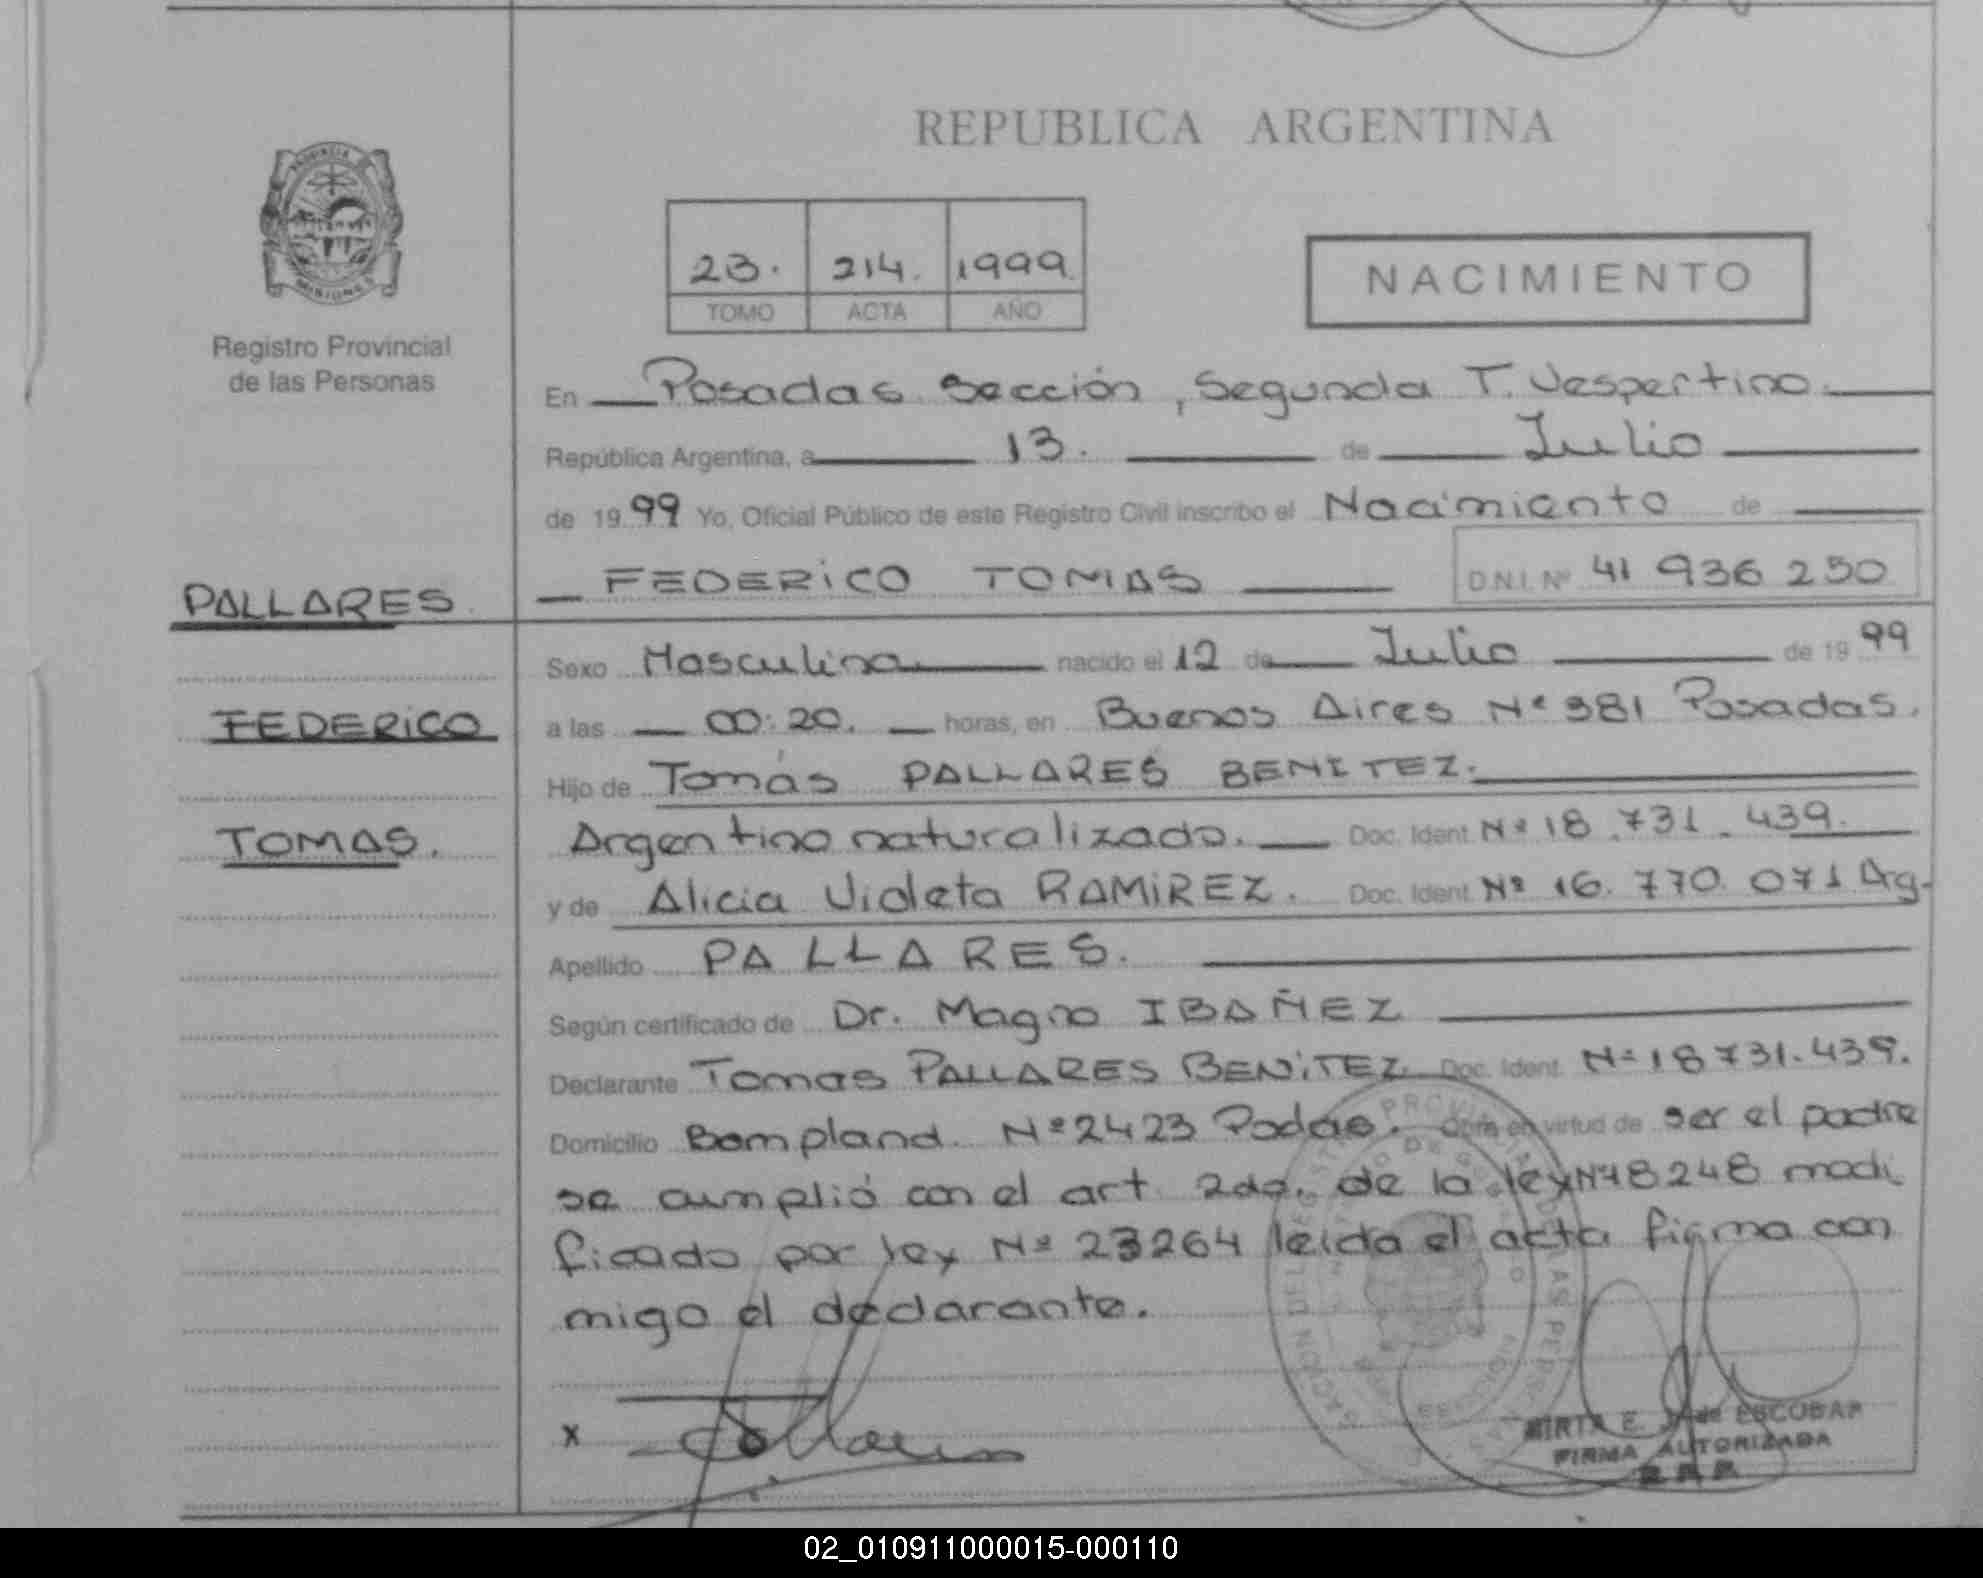 REPUBLICA ARGENTINA
PROVINCIA
MISIONES
Registro Provincial
de las Personas
23. 214. 1999.
TOMO ACTA AÑO
NACIMIENTO
En Posadas Sección, Segunda T. Vespertino.
República Argentina, a 13. de Julio
de 1999 Yo, Oficial Público de este Registro Civil inscribo el Nacimiento de
PALLARES. FEDERICO TOMAS D.N.I. Nº 41 936 250
Sexo Masculino nacido el 12 de Julio de 1999
FEDERICO
a las 00:20. horas, en Buenos Aires Nº 981 Posadas.
Hijo de Tomás PALLARES BENITEZ.
TOMAS.
Argentino naturalizado. Doc. Ident. Nº 18.731.439.
y de Alicia Violeta RAMIREZ. Doc. Ident. Nº 16.770.071 Arg.
Apellido PALLARES.
Según certificado de Dr. Magno IBAÑEZ
Declarante Tomas PALLARES BENITEZ Doc. Ident. Nº 18731.439.
Domicilio Bompland Nº 2423 Podas. Obra en virtud de ser el padre
se cumplió con el art. 2do. de la ley Nº 18248 modi
ficado por ley Nº 23264 leida el acta firma con
migo el declarante.
x
MIRTA E. de ESCOBAR
FIRMA AUTORIZADA
02_010911000015-000110